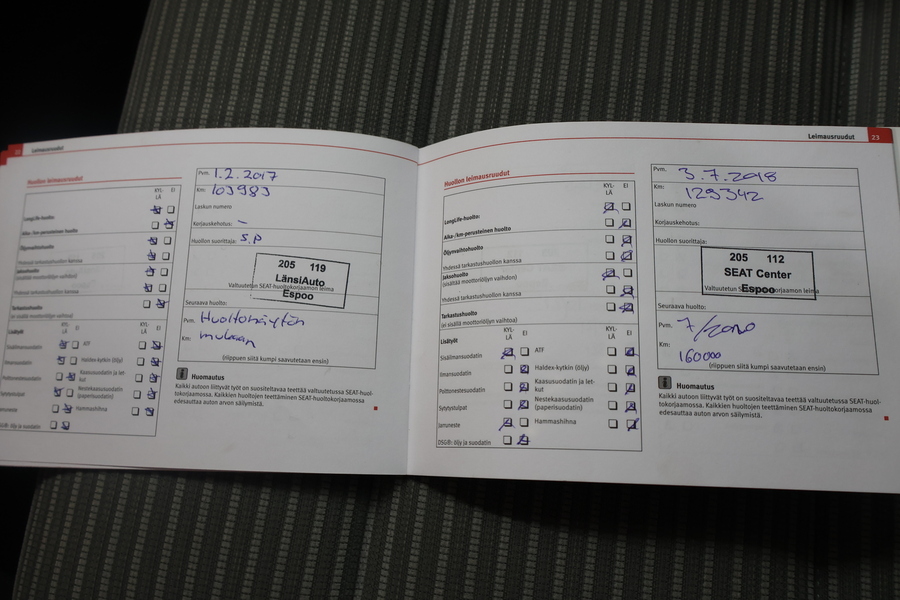 Leimausruudut
Huollon leimausruudut
KYL-
LÄ
EI
LongLife-huolto:
Aika-/km-perusteinen huolto
Öljynvaihtohuolto
Yhdessä tarkastushuollon kanssa
Jaksohuolto
(sisältää moottoriöljyn vaihdon)
Yhdessä tarkastushuollon kanssa
Tarkastushuolto
(ei sisällä moottoriöljyn vaihtoa)
Lisätyöt
KYL-
LÄ
EI
KYL-
LÄ
EI
Sisäilmansuodatin
ATF
Ilmansuodatin
Haldex-kytkin (öljy)
Polttonestesuodatin
Kaasusuodatin ja let-
kut
Sytytystulpat
Nestekaasusuodatin
(paperisuodatin)
Jarruneste
Hammashihna
DSG®: öljy ja suodatin
Pvm. 1.2.2017
Km: 103983
Laskun numero
Korjauskehotus: –
Huollon suorittaja: S.P
205 119
LänsiAuto
Valtuutetun SEAT-huoltokorjaamon leima
Espoo
Seuraava huolto:
Pvm. Huoltonäytön
Km: mukaan
(riippuen siitä kumpi saavutetaan ensin)
Huomautus
Kaikki autoon liittyvät työt on suositeltavaa teettää valtuutetussa SEAT-huol-
tokorjaamossa. Kaikkien huoltojen teettäminen SEAT-huoltokorjaamossa
edesauttaa auton arvon säilymistä.
Leimausruudut 23
Huollon leimausruudut
KYL-
LÄ
EI
LongLife-huolto:
Aika-/km-perusteinen huolto
Öljynvaihtohuolto
Yhdessä tarkastushuollon kanssa
Jaksohuolto
(sisältää moottoriöljyn vaihdon)
Yhdessä tarkastushuollon kanssa
Tarkastushuolto
(ei sisällä moottoriöljyn vaihtoa)
Lisätyöt
KYL-
LÄ
EI
KYL-
LÄ
EI
Sisäilmansuodatin
ATF
Ilmansuodatin
Haldex-kytkin (öljy)
Polttonestesuodatin
Kaasusuodatin ja let-
kut
Sytytystulpat
Nestekaasusuodatin
(paperisuodatin)
Jarruneste
Hammashihna
DSG®: öljy ja suodatin
Pvm. 3.7.2018
Km: 129342
Laskun numero
Korjauskehotus:
Huollon suorittaja:
205 112
SEAT Center
Valtuutetun SEAT-huoltokorjaamon leima
Espoo
Seuraava huolto:
Pvm. 7/2020
Km: 160000
(riippuen siitä kumpi saavutetaan ensin)
Huomautus
Kaikki autoon liittyvät työt on suositeltavaa teettää valtuutetussa SEAT-huol-
tokorjaamossa. Kaikkien huoltojen teettäminen SEAT-huoltokorjaamossa
edesauttaa auton arvon säilymistä.